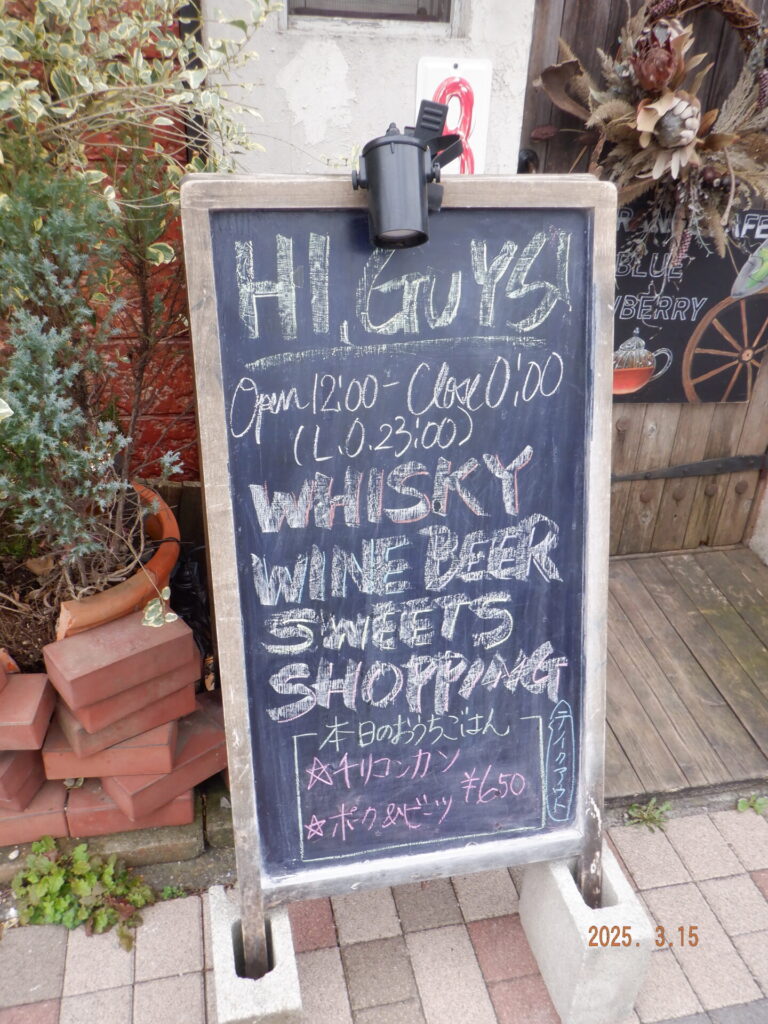 HI, GUYS!
Open 12:00 - Close 0:00
(L.O.23:00)
WHISKY
WINE BEER
SWEETS
SHOPPING
本日のおうちごはん
☆チリコンカン
¥650
☆ポーク&ビーンツ
テイクアウト
AFE
BLUE
BERRY
2025. 3.15